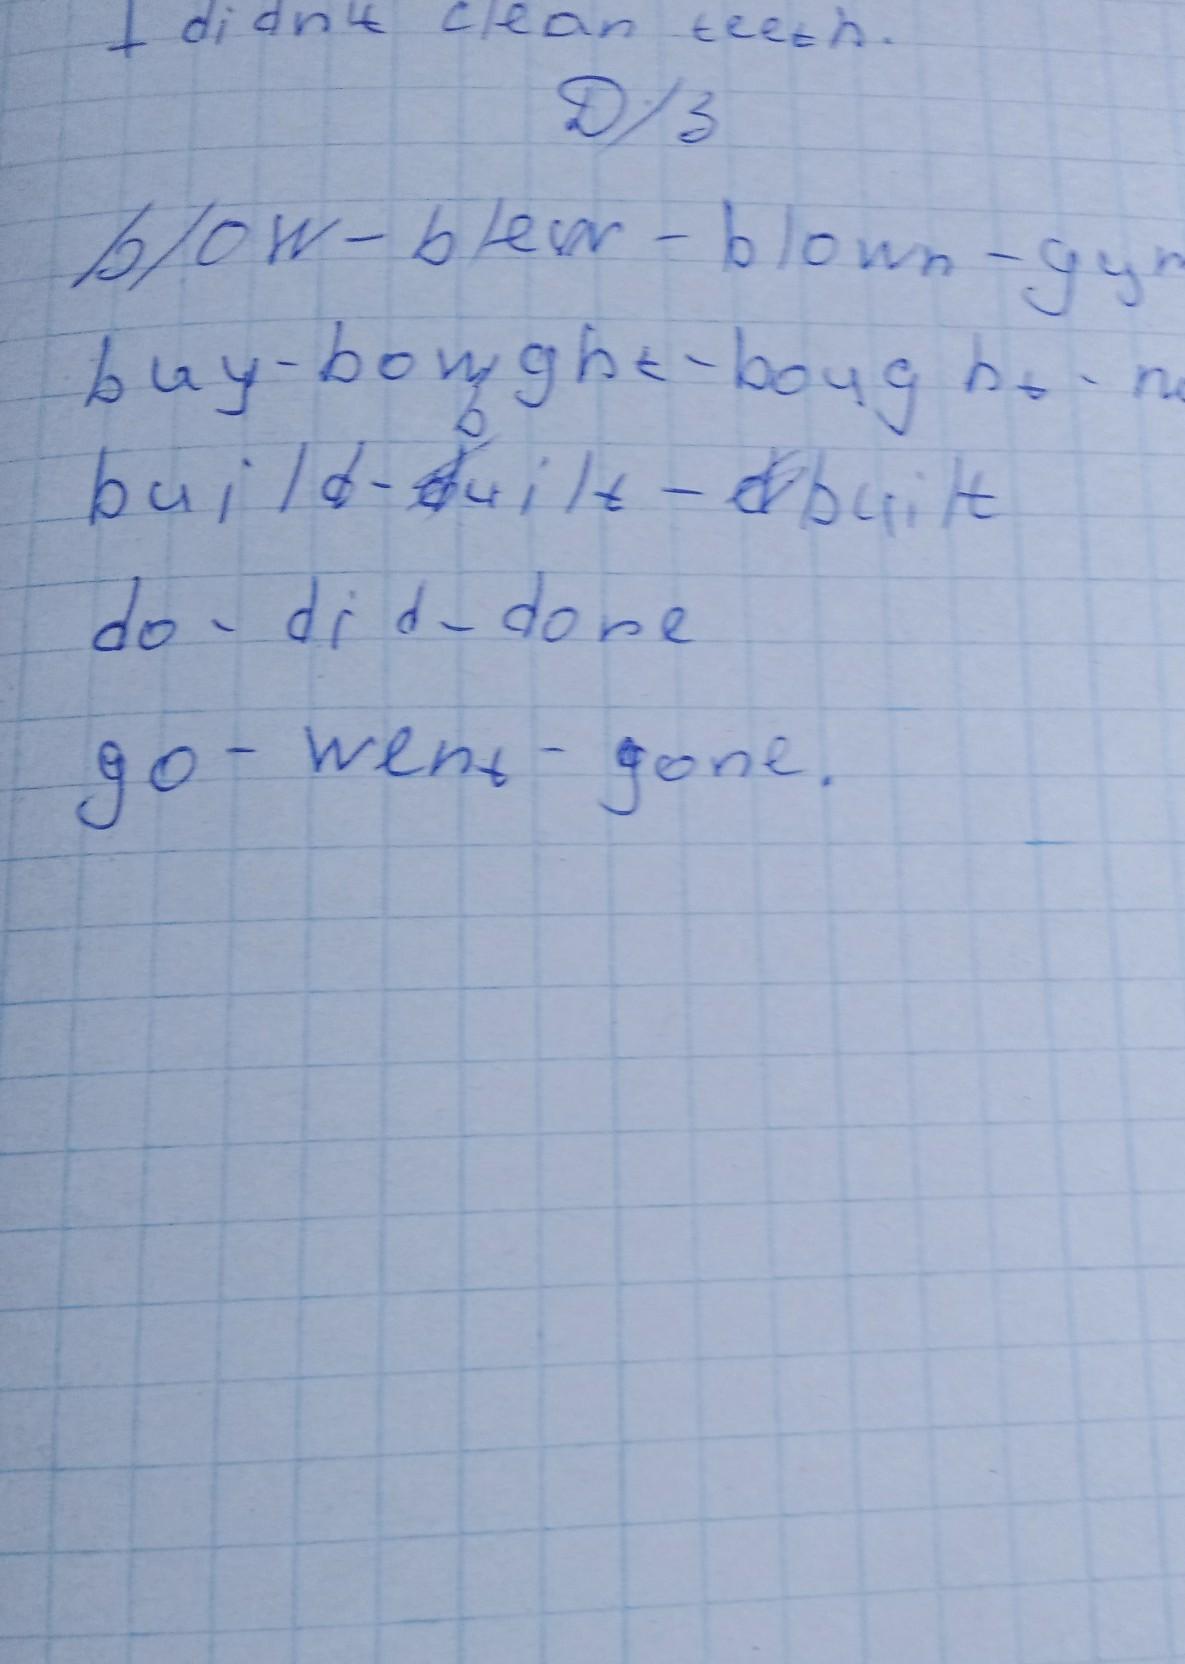 I didn't clean teeth.
Д/З
blow - blew - blown -
buy - bought - bought -
build - built - built
do - did - done
go - went - gone.